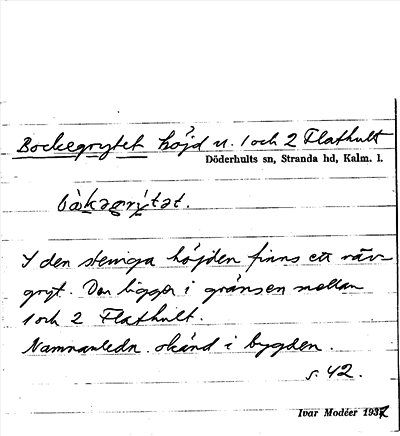 Bockegrytet höjd u. 1 och 2 Flathult
Döderhults sn, Stranda hd, Kalm. l.
bòkəgrỳtət.
I den steniga höjden finns ett räv-
gryt. Den ligger i gränsen mellan
1 och 2 Flathult.
Namnanledn. okänd i bygden.
s. 42.
Ivar Modéer 1937